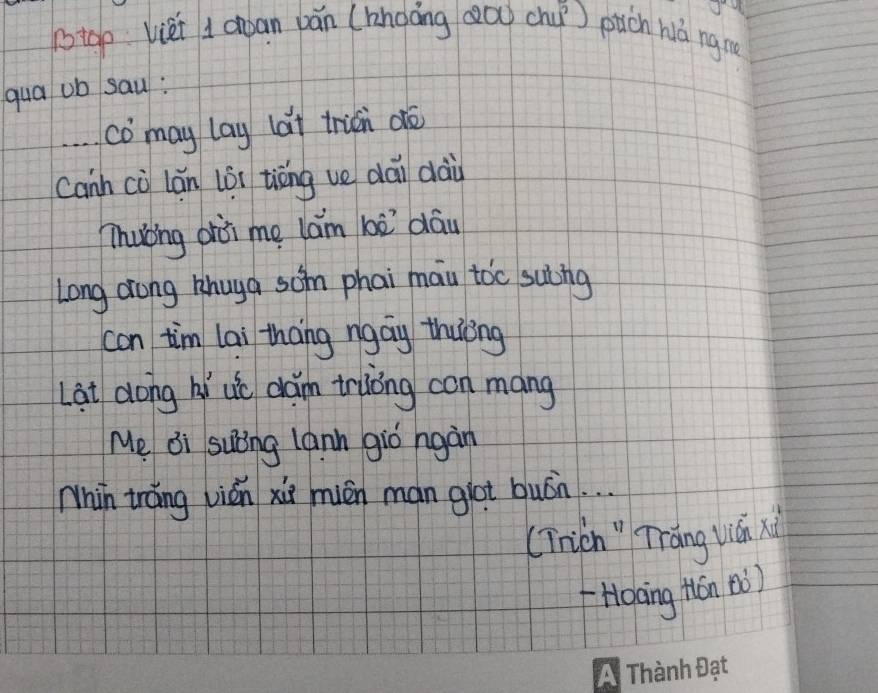 Btap: Viết 1 đoạn văn (khoảng 200 chữ) ptích h/ả ng mẹ
qua vb sau:
.... Cỏ may lay lắt triền đê
Cánh cò lặn lội tiếng ve dãi dầu
Thương đời mẹ lắm bể dâu
Long đong khuya sớm phai màu tóc sương
Con tìm lại tháng ngày thương
Lật dòng kí ức dặm trường con mang
Mẹ ơi sương lạnh gió ngàn
Nhìn trăng viễn xứ miên man giọt buồn...
(Trích "Trăng viễn xứ
- Hoàng Hôn Đỏ)
A Thành Đạt